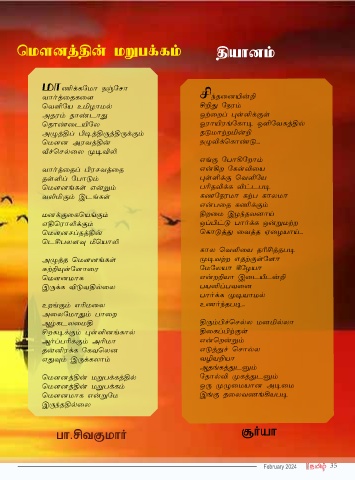 மௌனத்தின் மறுபக்கம்
மாணிக்கமோ நஞ்சோ
வார்த்தைகளை
வெளியே உமிழாமல்
அதரம் தாண்டாது
தொண்டையிலே
அழுத்திப் பிடித்திருந்திருக்கும்
மௌன அரவத்தின்
வீச்செல்லை முடிவிலி
வார்த்தைப் பிரசவத்தை
தள்ளிப் போடும்
மௌனங்கள் என்றும்
வலிமிகும் இடங்கள்
மனக்குகையெங்கும்
எதிரொலிக்கும்
மௌனசப்தத்தின்
டெசிபலளவு மீயொலி
அழுத்த மௌனங்கள்
சுற்றியுள்ளோரை
மௌனமாக
இருக்க விடுவதில்லை
உறங்கும் எரிமலை
அலைமோதும் பாறை
ஆழ்கடலமைதி
சிறகடிக்கும் புள்ளினங்கால்
ஆர்ப்பரிக்கும் அரிமா
தன்னிரக்க கேவலென
எதுவும் இருக்கலாம்
மௌனத்தின் மறுபக்கத்தில்
மௌனத்தின் மறுபக்கம்
மௌனமாக என்றுமே
இருந்ததில்லை
பா.சிவகுமார்
தியானம்
சிந்தனையின்றி
சிறிது நேரம்
ஒற்றைப் புள்ளிக்குள்
ஓராயிரங்கோடி ஒளிவேகத்தில்
தடுமாற்றமின்றி
நழுவிக்கொண்டு..
எங்கு போகிறோம்
என்கிற கேள்வியை
புள்ளிக்கு வெளியே
பரிதவிக்க விட்டபடி
கணநேரமா கற்ப காலமா
என்பதை கணிக்கும்
திறமை இழந்தவளாய்
ஒப்பிட்டு பார்க்க ஒன்றுமற்ற
கொடுத்து வைத்த ஏழையாய்..
கால வெளியை தரிசித்தபடி
முடிவற்ற எதற்குள்ளோ
மேலேயா கீழேயா
என்றறியா இடையீடின்றி
பயணிப்பவளை
பார்க்க முடியாமல்
உணர்ந்தபடி..
திரும்பிச்செல்ல மனமில்லா
திகைப்பிற்குள்
என்றென்றும்
எடுத்துச் சொல்ல
வழியறியா
ஆதங்கத்துடனும்
தோல்வி முகத்துடனும்
ஒரு முழுமையான அடிமை
இங்கு தலைவணங்கியபடி
சூர்யா
February 2024
35